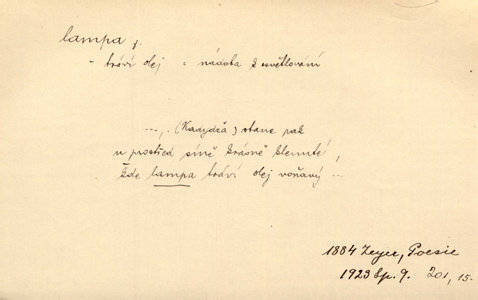 lampa f.
- tráví olej = nádoba k osvětlování
..., (Kadydža) stane pak
u prostřed síně krásně klenuté,
kde lampa tráví olej voňavý ...
1884 Zeyer, Poesie
1923 Sp. 9. 201, 15.